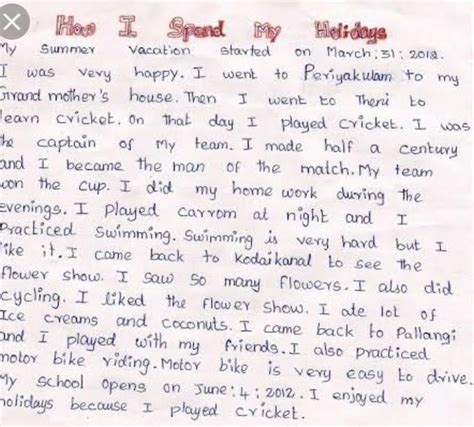 How I Spend My Holidays
My summer vacation started on March:31:2012.
I was very happy. I went to Periyakulam to my
Grand mother's house. Then I went to Theni to
learn cricket. On that day I played cricket. I was
the captain of my team. I made half a century
and I became the man of the match. My team
won the cup. I did my home work during the
evenings. I played carrom at night and I
Practiced swimming. Swimming is very hard but I
like it. I came back to Kodaikanal to see the
flower show. I saw so many flowers. I also did
cycling. I liked the flower show. I ate lot of
Ice creams and coconuts. I came back to Pallangi
and I played with my friends. I also practiced
motor bike riding. Motor bike is very easy to drive.
My school opens on June:4:2012. I enjoyed my
holidays because I played cricket.